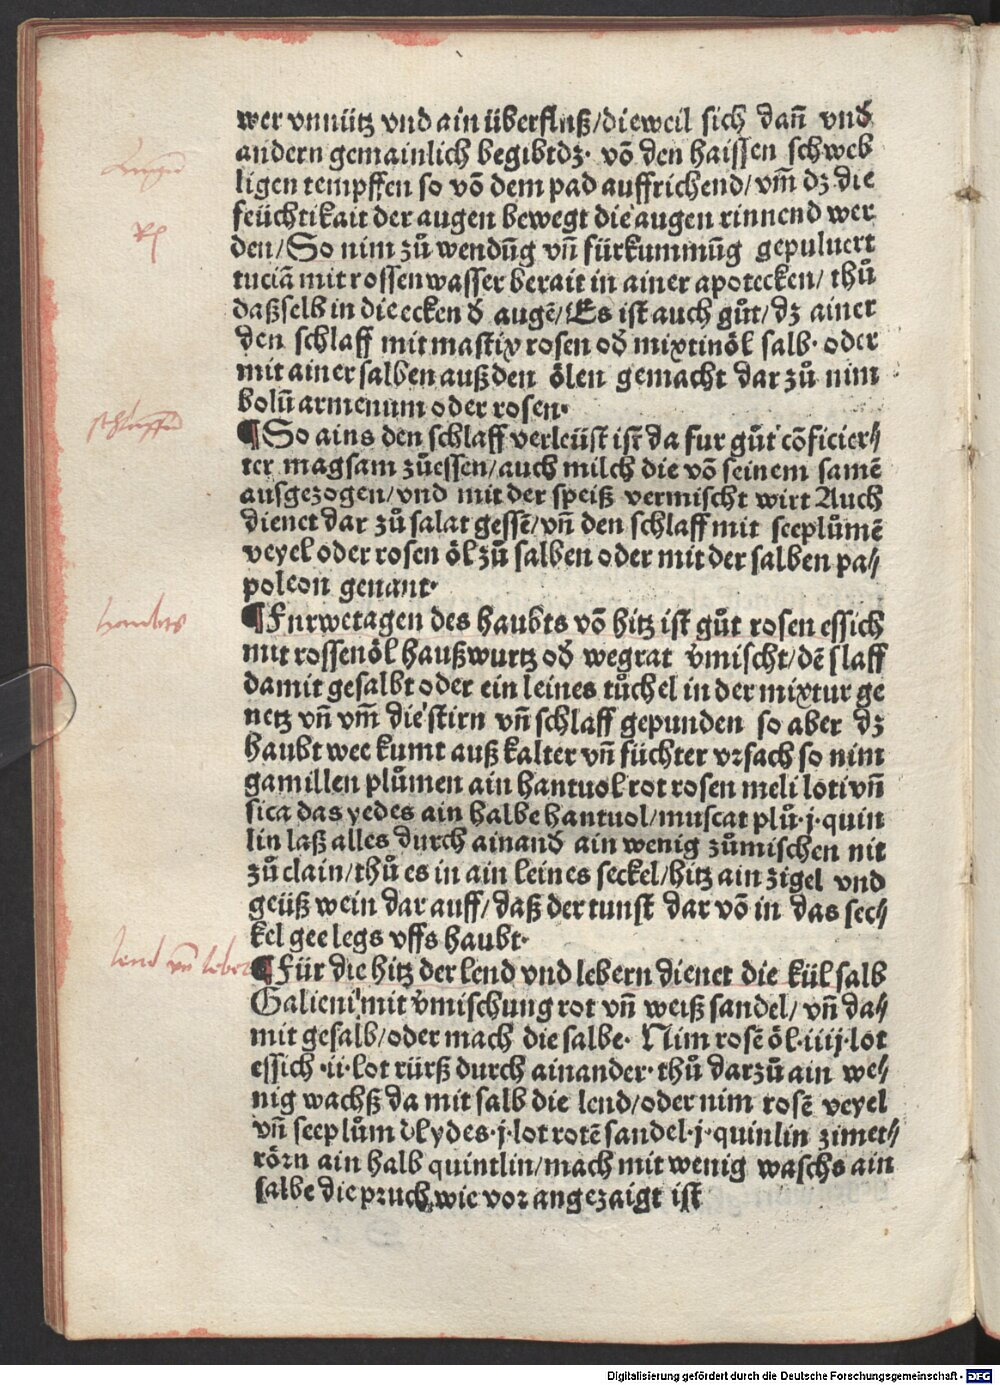 wer vnnütz vnd ain überfluß/dieweil sich dañ vnd
andern gemainlich begibt dz· võ den haissen schweb
ligen tempffen so võ dem pad auffrichend/vm̃ dz die
feüchtikait der augen bewegt die augen rinnend wer
den/So nim zů wendũg vñ fürkummũg gepuluert
tuciã mit rossen wasser berait in ainer apotecken/ thů
daßselb in die ecken d̕ augẽ/Es ist auch gůt/dz ainer
den schlaff mit mastix rosen od̕ mixtinöl salb· oder
mit ainer salben auß den ölen gemacht dar zů nim
bolũ armenum oder rosen·
¶So ains den schlaff verleüst ist da fur gůt cõficier⸗
ter magsam zůessen/auch milch die võ seinem samẽ
ausgezogen/vnd mit der speiß vermischt wirt Auch
dienet dar zů salat gessẽ/vñ den schlaff mit seeplůmẽ
veyel oder rosen öl zů salben oder mit der salben pa⸗
poleon genant·
¶Furwetagen des haubts võ hitz ist gůt rosen essich
mit rossenöl haußwurtz od̕ wegrat v̕mischt/dẽ slaff
damit gesalbt oder ein leines tůchel in der mixtur ge
netz vñ vm̃ die stirn vñ schlaff gepunden so aber dz
haubt wee kumt auß kalter vñ füchter vrsach so nim
gamillen plůmen ain hantuol rot rosen meli loti vñ
sica das yedes ain halbe hantuol/muscat plů·j·quin
lin laß alles durch ainand̕ ain wenig zůmischen nit
zů clain/thů es in ain leines seckel/hitz ain zigel vnd
geüß wein dar auff/daß der tunst dar võ in das sec⸗
kel gee legs vffs haubt·
haubts
lend vñ leber
¶Für die hitz der lend vnd lebern dienet die kül salb
Galieni mit v̕mischung rot vñ weiß sandel/vñ da⸗
mit gesalb/oder mach die salbe· Nim rosẽ öl·iiij·lot
essich ·ii·lot rürß durch ainander·thů darzů ain we⸗
nig wachß da mit salb die lend/oder nim rosẽ veyel
vñ seeplům d̕ lydes·j·lot rotẽ sandel·j·quinlin zimet⸗
rörn ain halb quintlin/mach mit wenig waschs ain
salbe die pruch wie vor angezaigt ist
Digitalisierung gefördert durch die Deutsche Forschungsgemeinschaft - DFG